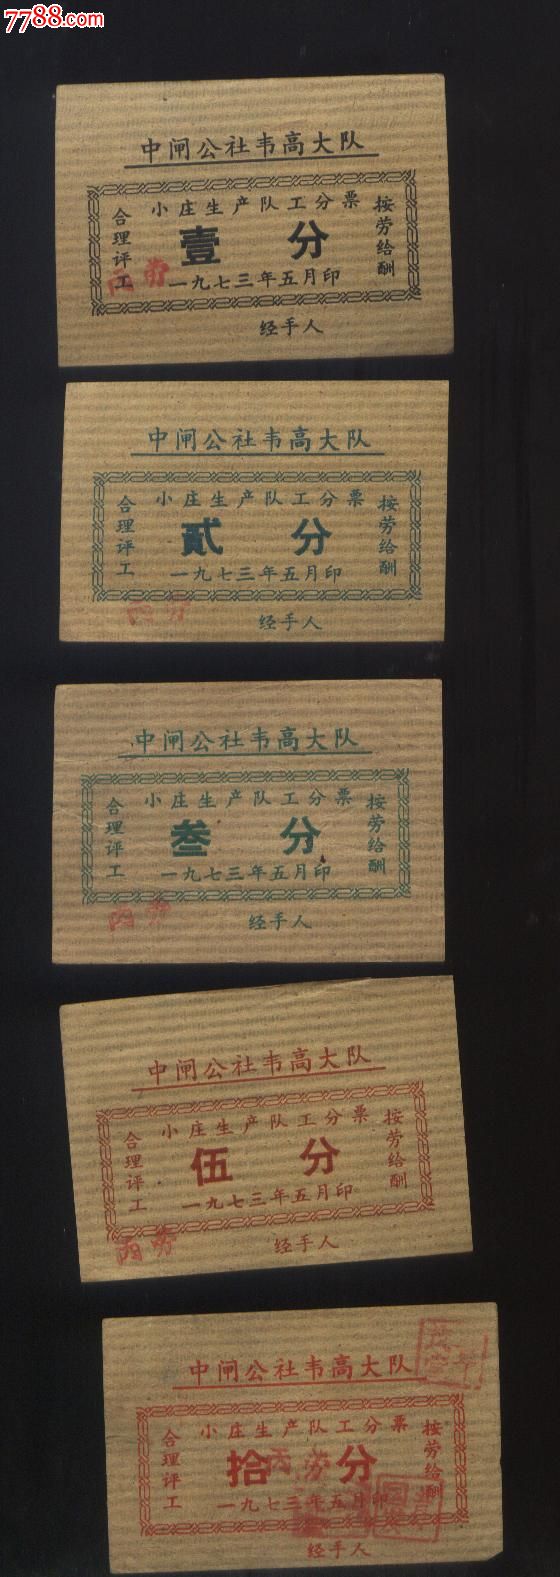 7788.com
中闸公社韦高大队
小庄生产队工分票
合理评工
壹 分
按劳给酬
一九七三年五月印
丙 劳
经手人
中闸公社韦高大队
小庄生产队工分票
合理评工
贰 分
按劳给酬
一九七三年五月印
丙 劳
经手人
中闸公社韦高大队
小庄生产队工分票
合理评工
叁 分
按劳给酬
一九七三年五月印
丙 劳
经手人
中闸公社韦高大队
小庄生产队工分票
合理评工
伍 分
按劳给酬
一九七三年五月印
丙 劳
经手人
中闸公社韦高大队
小庄生产队工分票
合理评工
拾 分
丙 劳
按劳给酬
一九七三年五月印
经手人